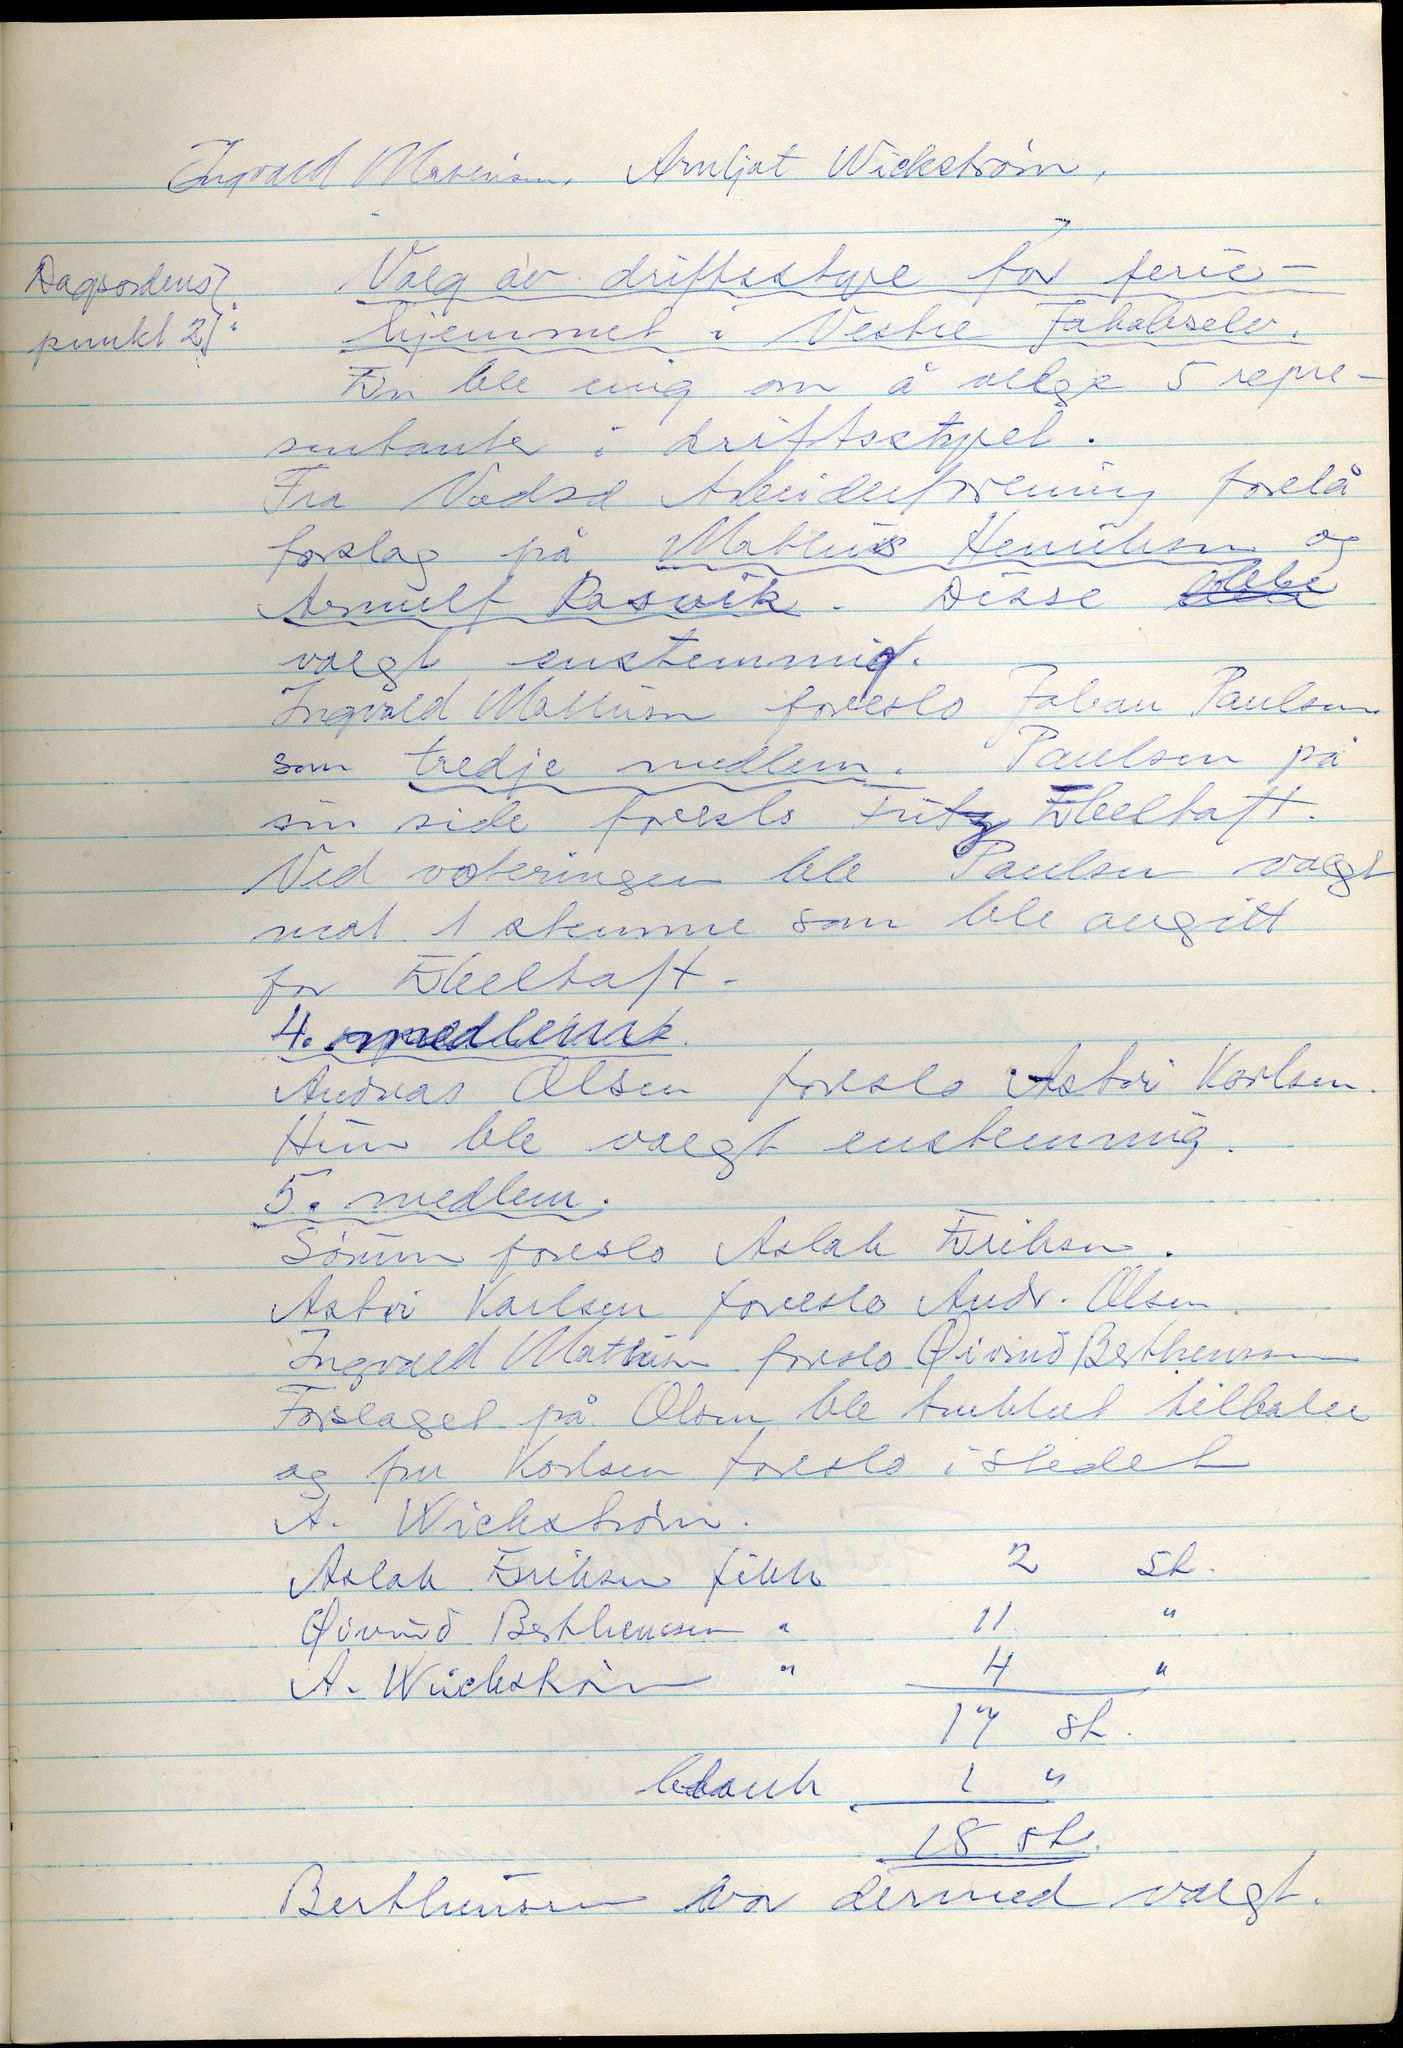 Ingvald Mathisen. Arnljot Wickstrøm,
Dagsordens
punkt 2):
Valg av driftsstyre for ferie-
hjemmet i Vestre Jakobselv.
En ble enig om å velge 5 repre-
sentanter i driftsstyret.
Fra Vadsø Arbeiderforening forelå
forslag på Mathis Henriksen og
Arnulf Rasvik. Disse ble
valgt enstemmig.
Ingvald Mathisen foreslo Johan Paulsen
som tredje medlem. Paulsen på
sin side foreslo Fritz Ebeltoft.
Ved voteringen ble Paulsen valgt
mot 1 stemme som ble avgitt
for Ebeltoft.
4. medlem.
Andreas Olsen foreslo Astri Karlsen.
Hun ble valgt enstemmig.
5. medlem.
foreslo Aslak Eriksen.
Astri Karlsen foreslo Andr. Olsen.
Ingvald Mathisen foreslo Øivind Bertheussen
Forslaget på Olsen ble trukket tilbake
og fru Karlsen foreslo istedet
A. Wickstrøm.
Aslak Eriksen fikk 2 st.
Øivind Bertheussen " 11 "
A. Wickstrøm " 4 "
17 st.
blank 1 "
18 st.
Bertheussen var dermed valgt.